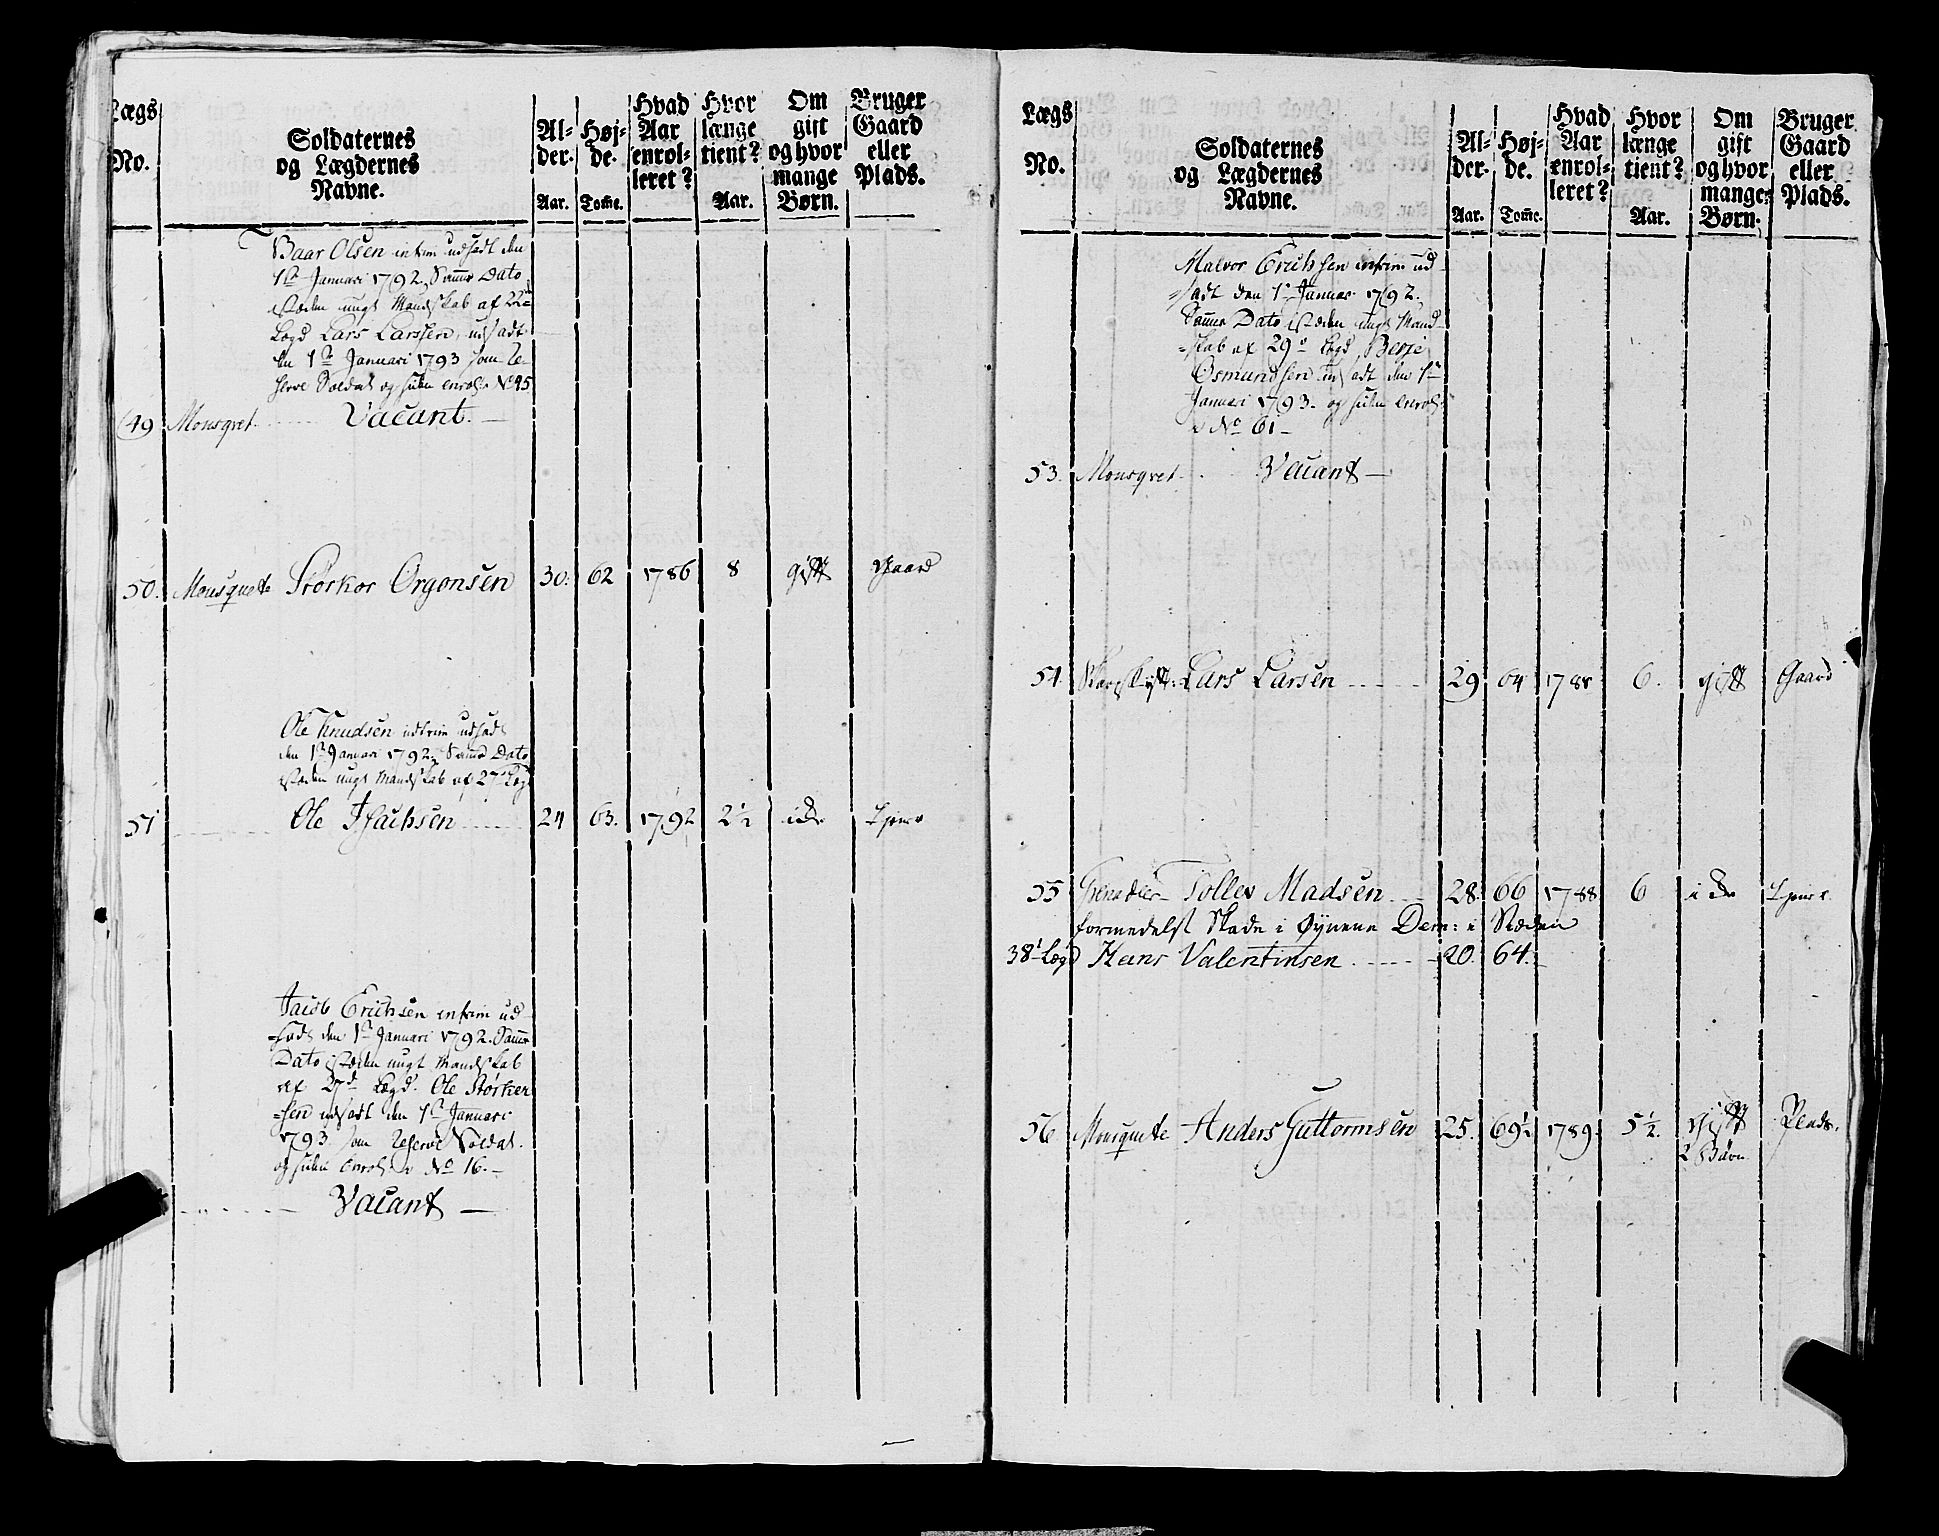 Lægs
No.
Soldaternes
og Lægdernes
Navne.
Al-
der.
Aar.
Høj-
de.
Tom̃e.
Hvad
Aar
enrol-
leret?
Hvor
længe
tient?
Aar.
Om
gift
og hvor
mange
Børn.
Bruger
Gaard
eller
Plads.
Baar Olsen udsadt den
1te Januari 1792, Dato
istæden ungt Mandskab af 22de
Lægd Lars Larssen, udsadt
den 1te Januari 1793 som Re-
serve Soldat og siden No 45
49 Mousqvet. Vacant.
50. Mousquete Størkor Orgonsen 30. 62 1786 8 gift Gaard
Ole Knudsen udsadt
den 1te Januari 1792, Dato
istæden ungt Mandskab af 27de Læg
51 Ole Isachsen 24 63. 1792 2½ icke Tjener
Jacob Erichsen ud-
=sadt den 1te Januari 1792.
Dato istæden ungt Mandskab
af 27de Lægd. Ole Størker
=sen udsadt den 1te Januari
1793 som Reserve Soldat.
og siden No 16.
Vacant
Lægs
No.
Soldaternes
og Lægdernes
Navne.
Al-
der.
Aar.
Høj-
de.
Tom̃e.
Hvad
Aar
enrol-
leret?
Hvor
længe
tient?
Aar.
Om
gift
og hvor
mange
Børn.
Bruger
Gaard
eller
Plads.
Malvor Erichsen ud-
=sadt den 1te Januar 1792.
Dato istæden ungt Mand-
=skab af 29de Lægd,
Osmundsen udsadt den 1te
Januari 1793. og siden
No 61
53. Mousqvet. Vacant
54. Skarpskytt: Lars Larsen 29 64 1788 6. gift Gaard
55 Grenadeer Tollev Madsen 28. 66 1788 6 icke Tjener
formedelst Skade i Øynene Dem: i Stæden
38te Lægd Hans Valentinsen 20. 64.
56 Mousquete Anders Guttormsen 25. 69½ 1789. 5½. gift Plads.
2 Børn